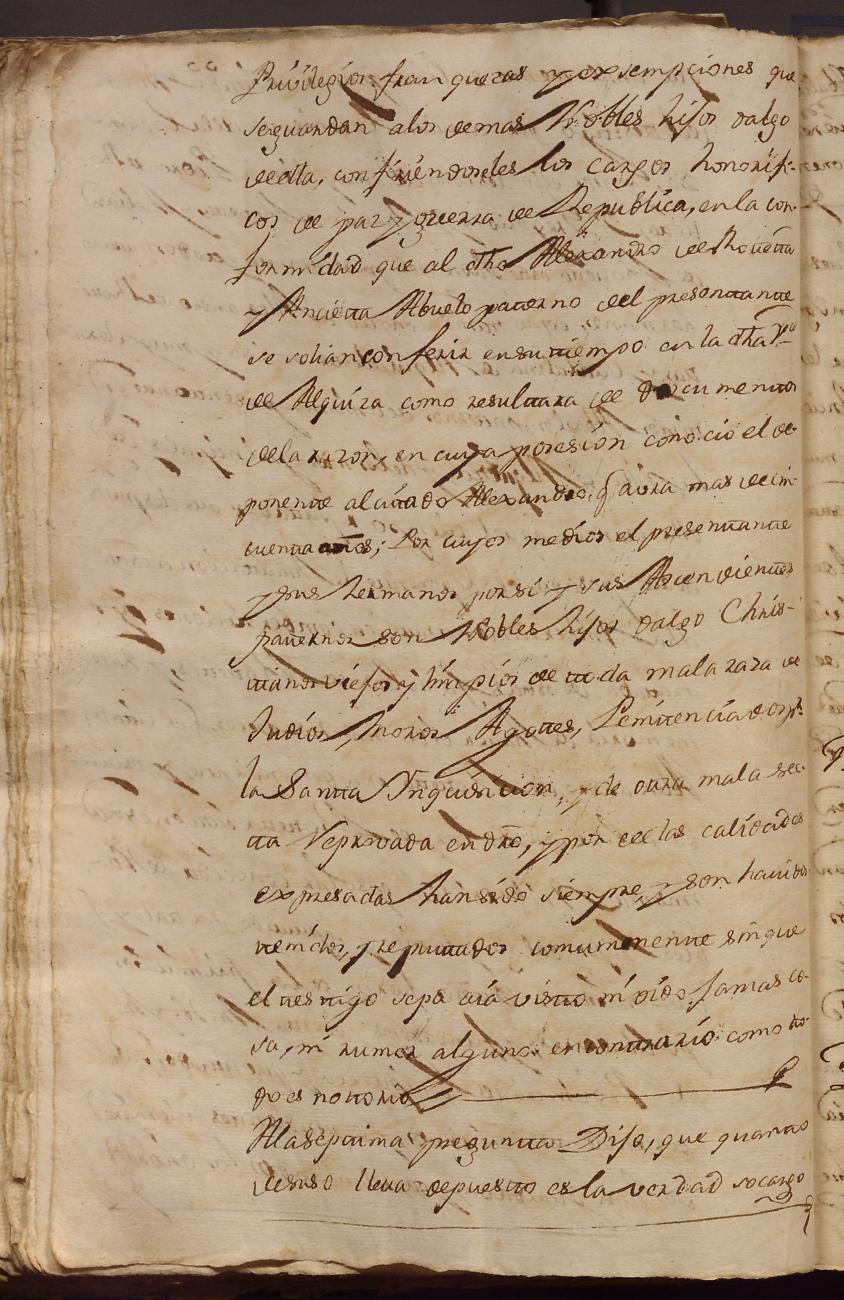 Privilegios franquezas y exsempciones que
seguardan alos demas Nobles hijos dalgo
deella, confiriendoseles los cargos honorifi-
cos de paz y guerra de Republica, en la con-
formidad que al dho Alexandro de Roveta
y Ancieta Abuelo paterno del presenttantte
se solian conferir en su tiempo en la dha Va
de Alquiza como resulttara de documenttos
dela razon, en cuya posesion conocio el de-
ponentte al cittado Alexandro, q avra mas de cin-
cuentta años; Por cuyos medios el presenttantte
y sus hermanos por si y sus Ascendienttes
patternos son Nobles hijos dalgo Chris-
ttianos viejos y limpios de ttoda mala raza de
Judios, Moros Agottes, Penitenciados pr
la Santta Inquisicion, y de ottra mala sec-
tta reprovada en dro, y por de las calidades
expresadas han sido siempre, y son havidos
ttenidos, y reputtados comunmentte sin que
el testtigo sepa aia vistto ni oido jamas co-
sa, ni rumor alguno en conttrario como tto-
do es nottorio
Ala septtima pregunta Dijo, que quantto
desuso lleva depuestto es la verdad so cargo